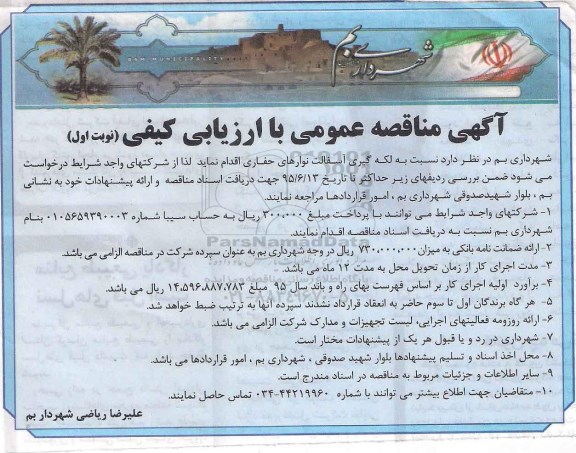 شهرداری بم
آگهی مناقصه عمومی با ارزیابی کیفی (نوبت اول)
شهرداری بم در نظر دارد نسبت به لکه گیری آسفالت نوارهای حفاری اقدام نماید لذا از شرکتهای واجد شرایط درخواست
می شود ضمن بررسی ردیفهای زیر حداکثر تا تاریخ ۹۵/۶/۱۳ جهت دریافت اسناد مناقصه و ارائه پیشنهادات خود به نشانی
بم ، بلوار شهیدصدوقی شهرداری بم ، امور قراردادها مراجعه نمایند.
۱- شرکتهای واجد شرایط می توانند با پرداخت مبلغ ۳۰۰,۰۰۰ ریال به حساب سیبا شماره ۰۱۰۵۶۵۹۳۹۰۰۰۳ بنام
شهرداری بم نسبت به دریافت اسناد مناقصه اقدام نمایند.
۲- ارائه ضمانت نامه بانکی به میزان ۷۳۰,۰۰۰,۰۰۰ ریال در وجه شهرداری بم به عنوان سپرده شرکت در مناقصه الزامی می باشد.
۳- مدت اجرای کار از زمان تحویل محل به مدت ۱۲ ماه می باشد.
۴- برآورد اولیه اجرای کار بر اساس فهرست بهای راه و باند سال ۹۵ مبلغ ۱۴,۵۹۶,۸۸۷,۷۸۳ ریال می باشد.
۵- هر گاه برندگان اول تا سوم حاضر به انعقاد قرارداد نشدند سپرده آنها به ترتیب ضبط خواهد شد.
۶- ارائه روزومه فعالیتهای اجرایی، لیست تجهیزات و مدارک شرکت الزامی می باشد.
۷- شهرداری در رد و یا قبول هر یک از پیشنهادات مختار است.
۸- محل اخذ اسناد و تسلیم پیشنهادها بلوار شهید صدوقی ، شهرداری بم ، امور قراردادها می باشد.
۹- سایر اطلاعات و جزئیات مربوط به مناقصه در اسناد مندرج است.
۱۰- متقاضیان جهت اطلاع بیشتر می توانند با شماره ۴۴۲۱۹۹۶۰-۰۳۴ تماس حاصل نمایند.
علیرضا ریاضی شهردار بم
ParsNamadData